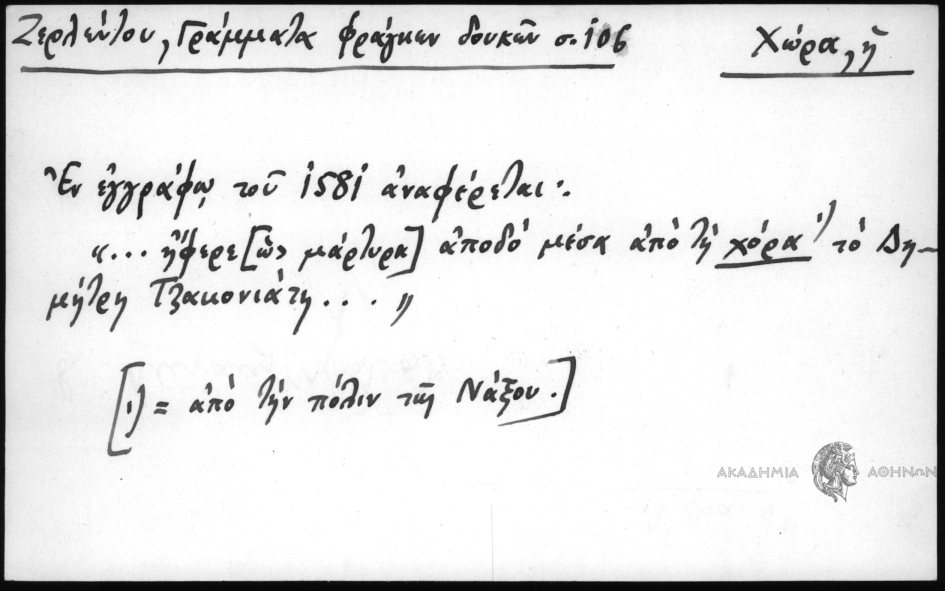 Ζερλέντου, Γράμματα φράγκων δουκῶν σ. 106
Χώρα, ἡ
Ἐν ἐγγράφῳ τοῦ 1581 ἀναφέρεται:
«... ἤφερε [ὡς μάρτυρα] ἀποδό μέσα ἀπὸ τὴ χόρα¹⁾ τὸ Δη-
μήτρη Τζακονιάτη ... »
[1) = ἀπὸ τὴν πόλιν τῆς Νάξου.]
ΑΚΑΔΗΜΙΑ ΑΘΗΝΩΝ